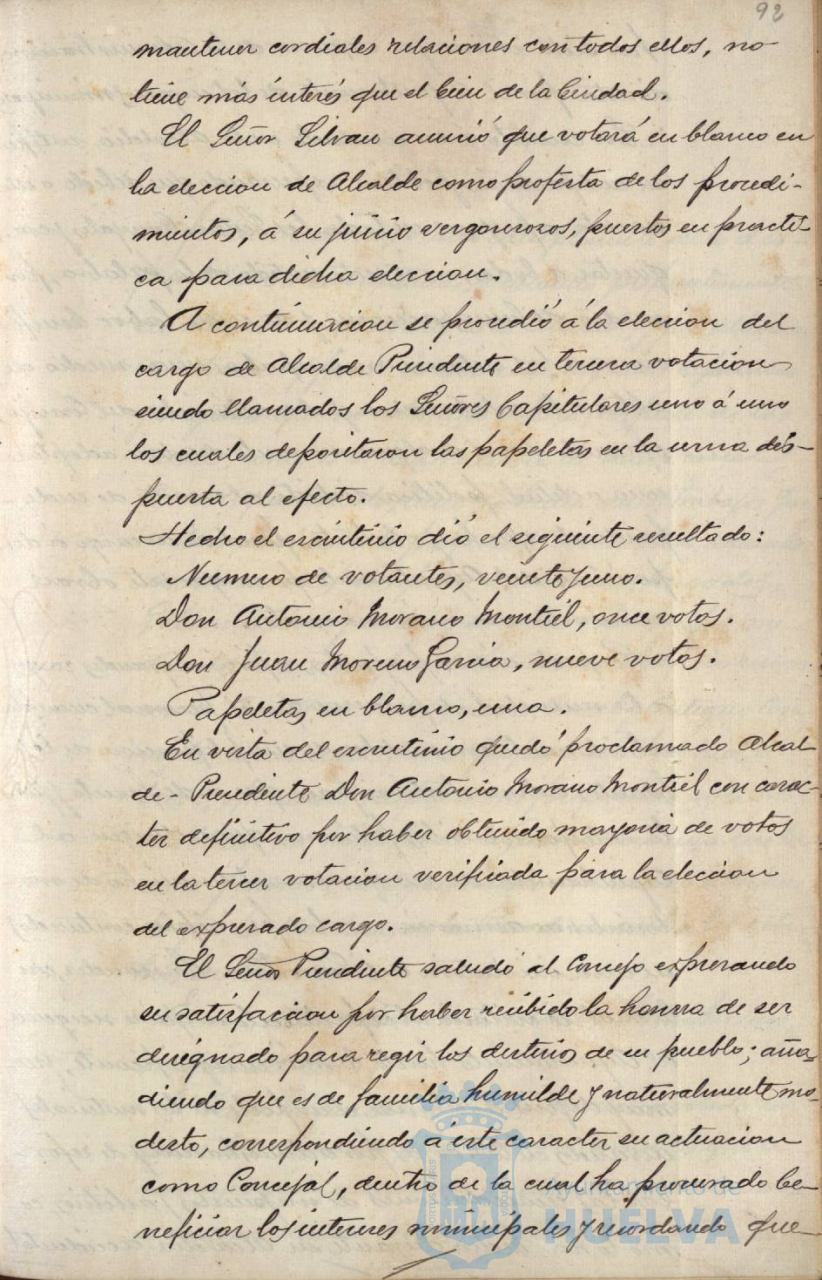 92
mantener cordiales relaciones con todos ellos, no
tiene más interés que el bien de la Ciudad.
El Señor Silvan anunció que votará en blanco en
la eleccion de Alcalde como protesta de los procedi-
mientos, á su juicio vergonzosos, puestos en practi-
ca para dicha eleccion.
A continuacion se procedió á la eleccion del
cargo de Alcalde Presidente en tercera votacion
siendo llamados los Señores Capitulares uno á uno
los cuales depositaron las papeletas en la urna dis-
puesta al efecto.
Hecho el escrutinio dió el siguiente resultado:
Numero de votantes, veinte y uno.
Don Antonio Morano Montiel, once votos.
Don Juan Moreno Garcia, nueve votos.
Papeletas en blanco, una.
En vista del escrutinio quedó proclamado Alcal
de-Presidente Don Antonio Morano Montiel con carac-
ter definitivo por haber obtenido mayoria de votos
en la tercer votacion verificada para la eleccion
del expresado cargo.
El Señor Presidente saludó al Concejo expresando
su satisfaccion por haber recibido la honra de ser
designado para regir los destinos de su pueblo; aña-
diendo que es de familia humilde y naturalmente mo-
desto, correspondiendo á este caracter su actuacion
como Concejal, dentro de la cual ha procurado be-
neficiar los intereses municipales y recordando que
Ayuntamiento de
HUELVA